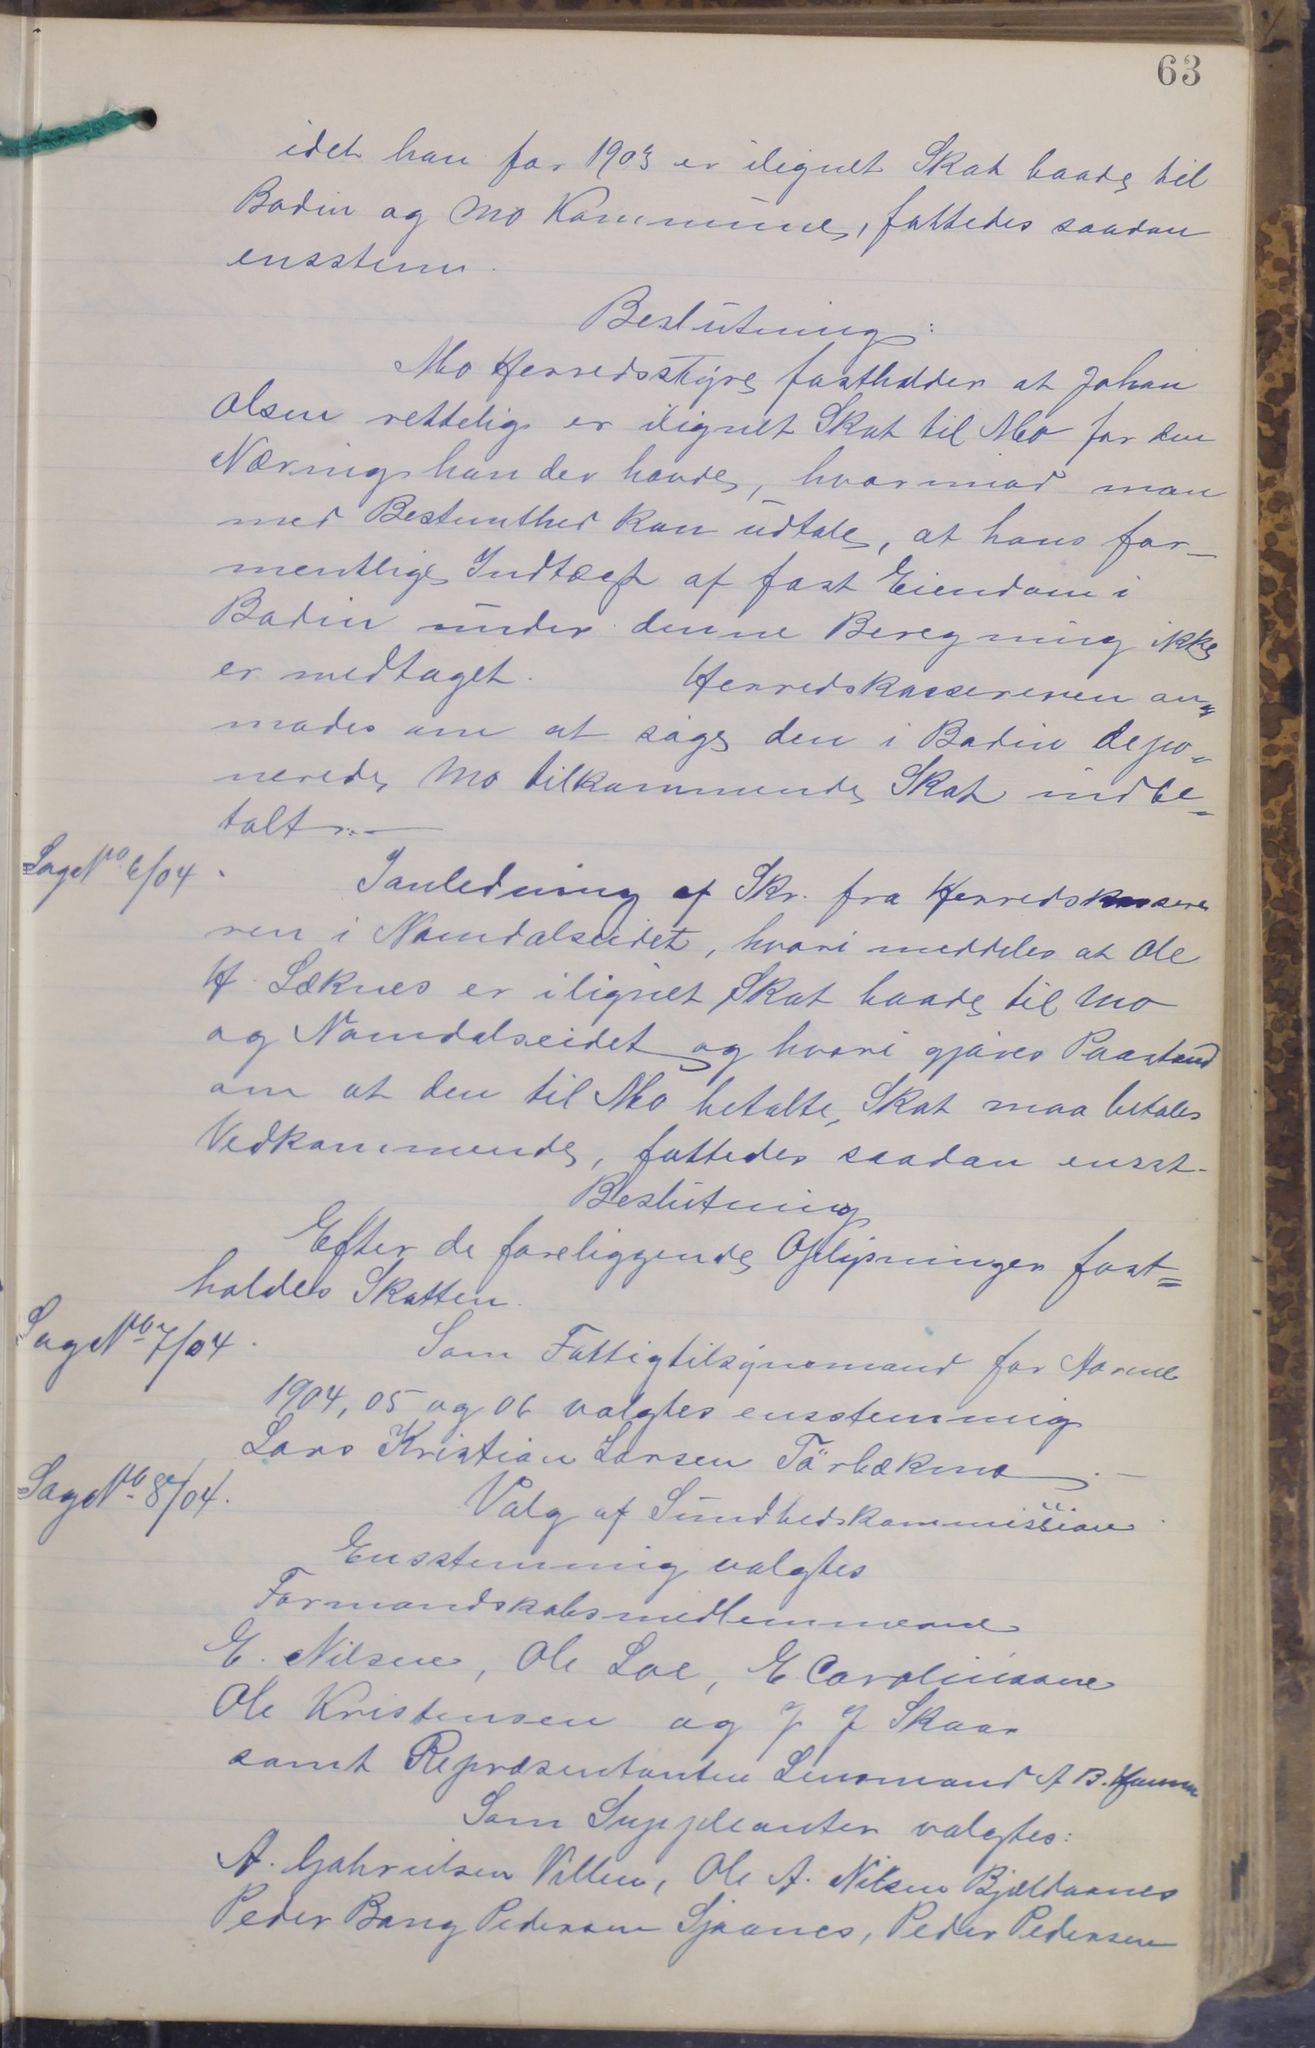 63
idet han for 1903 er ilignet Skat baade til
Bodin og Mo Kommune, fattedes saadan
enstem.
Beslutning:
Mo Herredsstyre fastholder at Johan
Olsen rettelig er ilignet Skat til Mo for den
Næring han der havde, hvorimod man
med Bestemthed kan udtale, at hans for-
mentlige Indtægt af fast Eiendom i
Bodin under denne Beregning ikke
er medtaget. Herredskassereren an-
modes om at søge den i Bodin depo-
nerede, Mo tilkommende Skat indbe-
talt.
Sag No 6/04. I anledning af Skr. fra Herredskassere
ren i Namdalseidet, hvori meddeles at Ole
H. Leknes er ilignet Skat baade til Mo
og Namdalseidet og hvori gjøres Paastand
om at den til Mo betalte Skat maa betales
Vedkommende, fattedes saadan enst.
Beslutning
Efter de foreliggende Oplysninger fast=
holdes Skatten.
Sag No 7/04. Som Fattigtilsynsmand for Aarene
1904, 05 og 06 valgtes enstemmig
Lars Kristian Larsen Tørbækmo.
Sag No 8/04. Valg af Sundhedskommission
Enstemmig valgtes
Formandskabsmedlemmerne
E. Nilsen, Ole Loe, E. Caroliussen
Ole Kristensen og J J Skaar
samt Repræsentanten Lensmand A B.
Som Suppleanter valgtes:
A. Gabrielsen Villen, Ole A. Nilsen Bjeldaanes
Peder Bang Pedersen Sjaanes, Peder Pedersen